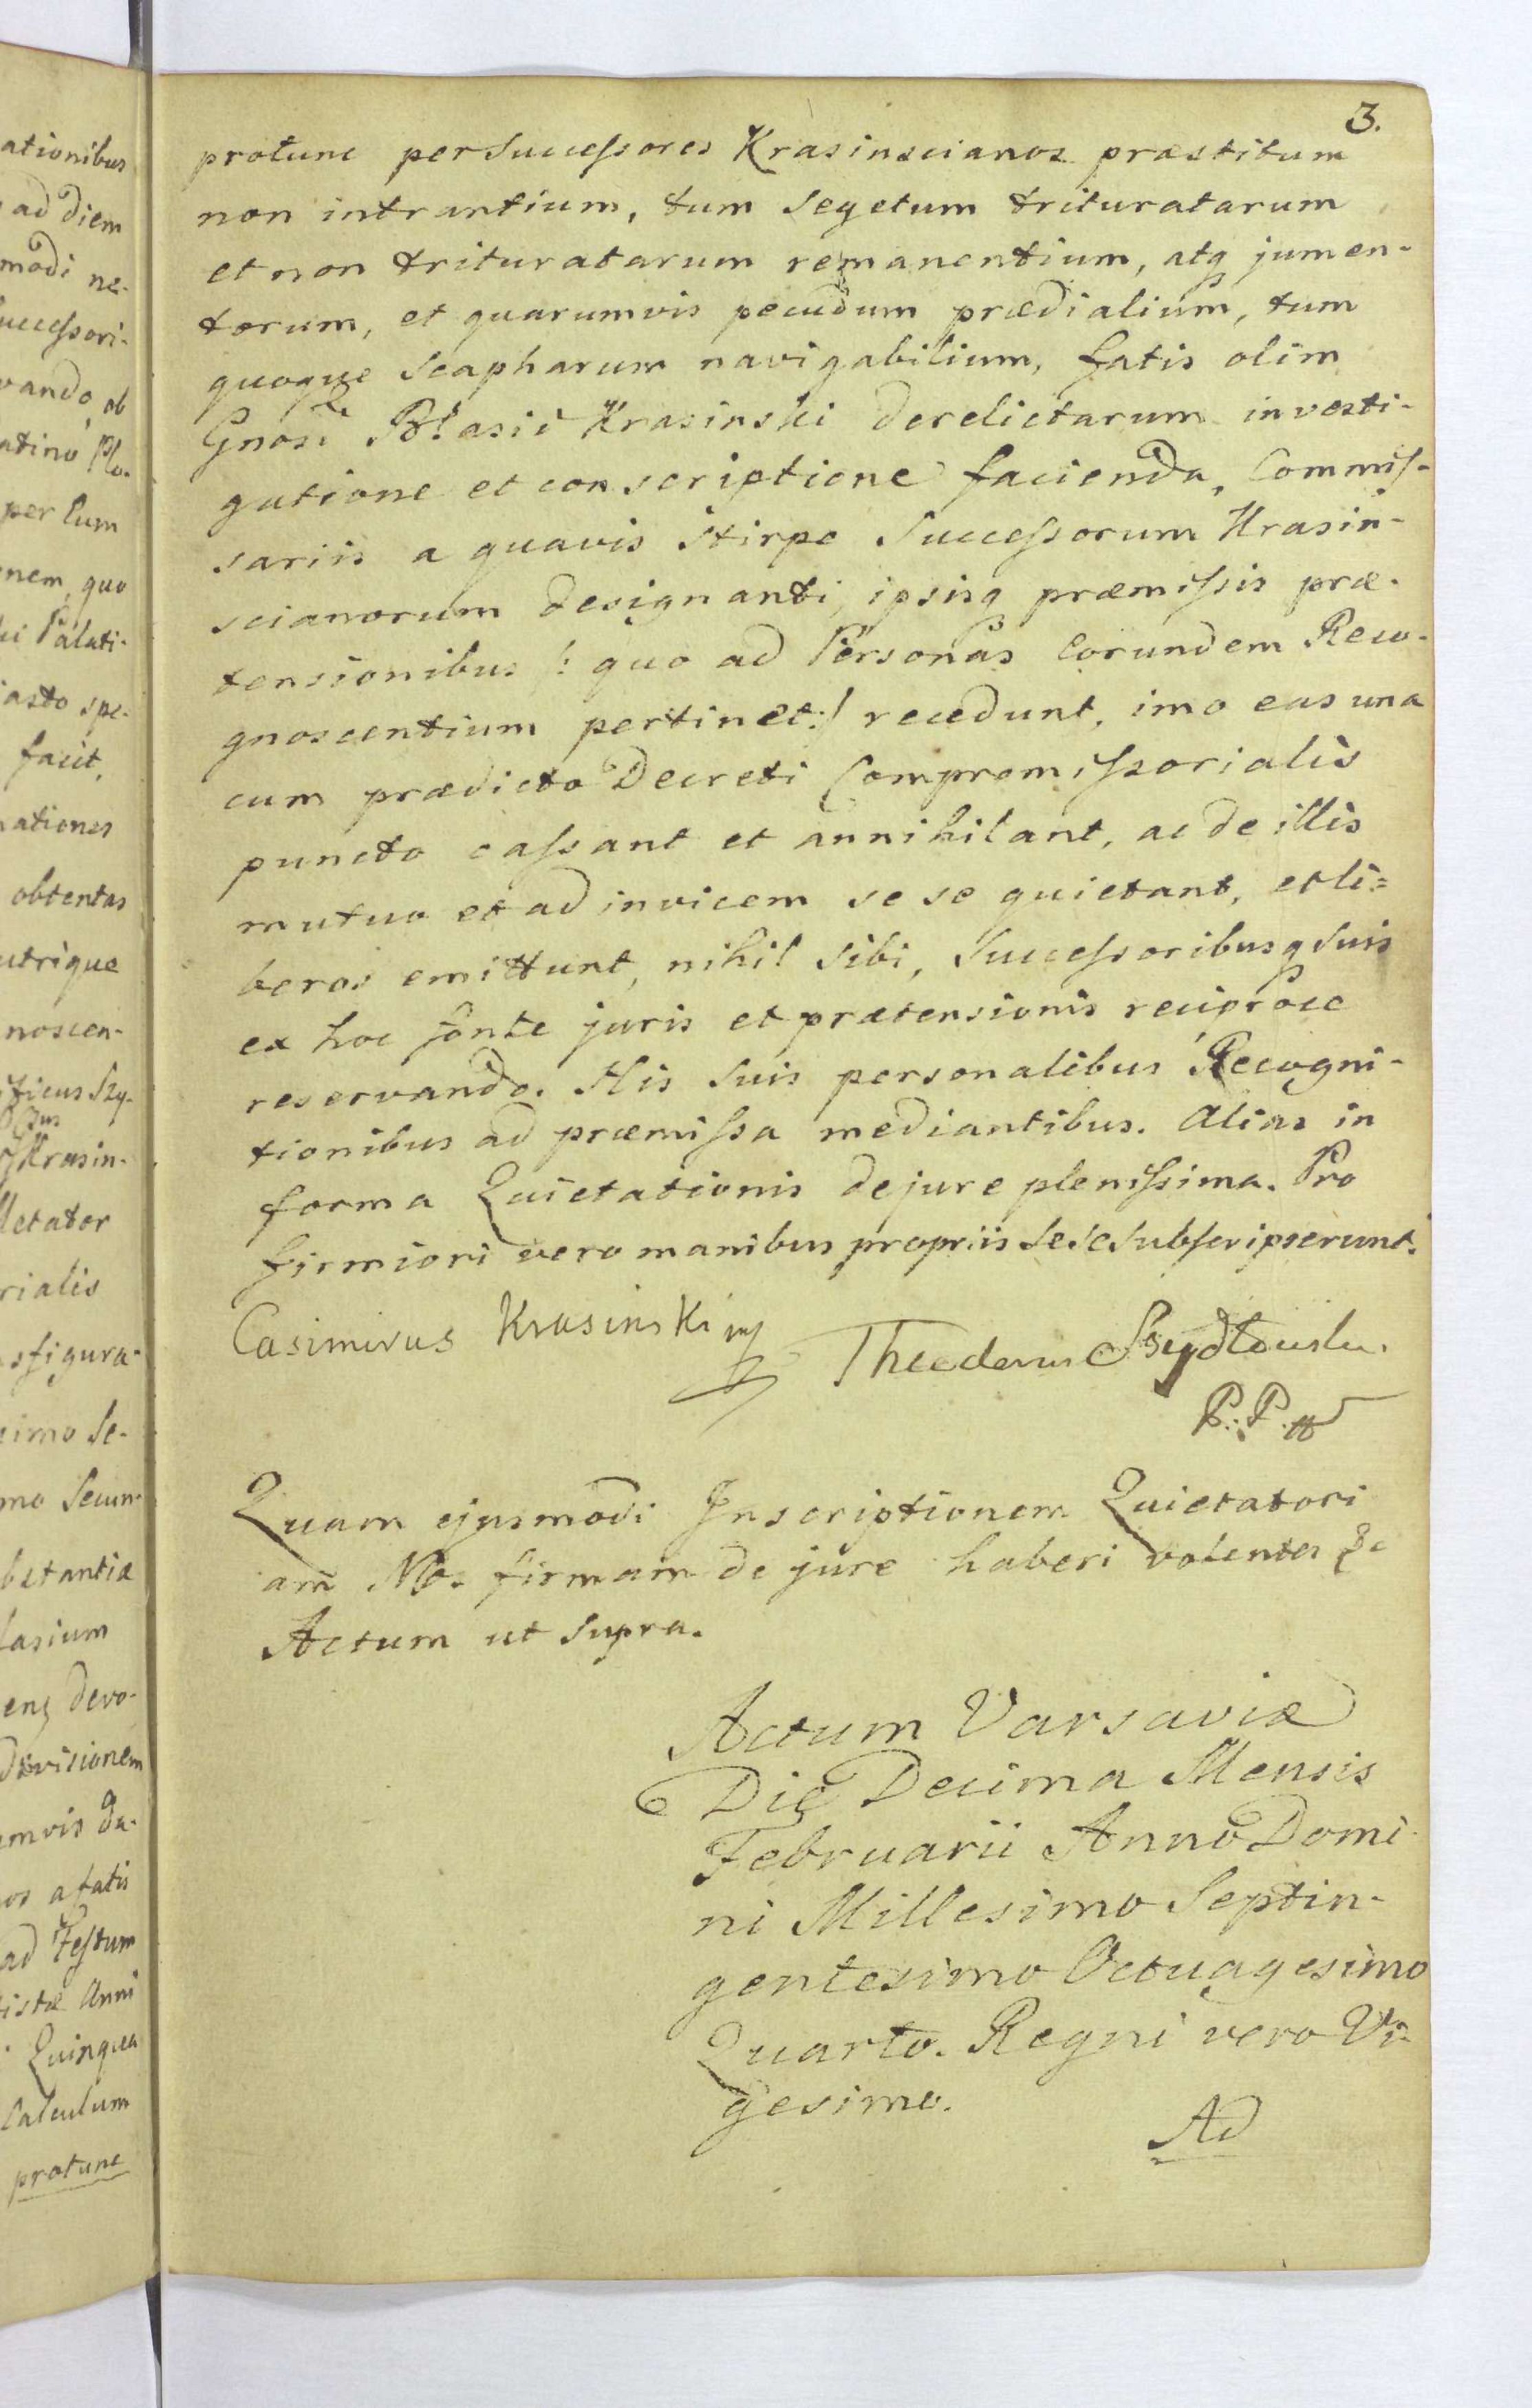 ationibus
ad diem
modi ne-
uccessori-
vando, ob
atino Plo-
per Cum
nem, quo
ki Palati-
asto spe-
facit,
ationes
obtentas
utrique
noscen-
ificus Szy-
Krasin-
lletator
rialis
sfigura-
simo Se-
mo Secun-
bstantiæ
lasium
enȝ devo-
divisionem
mvis Du-
os a fatis
ad Festum
istæ Anni
Quinqua
Calculum
protunc
3.
protunc per Successores Krasinscianos præstitum
non intrantium, tum Segetum trituratarum
et non trituratarum remanentium, atq jumen-
torum, et quarumvis pecudum prædialium, tum
quoque Scapharum navigabilium, fatis olim
Gnosi Blasii Krasinski derelictarum investi-
gatione et conscriptione facienda, Commis-
sariis a quavis Stirpe Successorum Krasin-
scianorum designanti, ipsisq præmissis præ-
tensionibus /: quo ad Personas Eorundem Reco-
gnoscentium pertinet :/ recedunt, imo eas una
cum prædicto Decreti Compromissorialis
puncto cassant et annihilant, ac de illis
mutuo et ad invicem se se quietant, et li=
beros emittunt, nihil Sibi, Successoribusq Suis
ex hoc fonte juris et prætensionis reciproce
reservando. His Suis personalibus Recogni-
tionibus ad præmissa mediantibus. Alias in
forma Quietationis de jure plenissima. Pro
firmiori vero manibus propriis Se se Subscripserunt.
Casimirus Krasinski mp
Theodorus Szydłowski.
P. P. W
Quam ejusmodi Inscriptionem Quietatori
am Nos firmam de jure haberi volentes &c
Actum ut Supra.
Actum Varsaviæ
Die Decima Mensis
Februarii Anno Domi-
ni Millesimo Septin-
gentesimo Octuagesimo
Quarto. Regni vero Vi-
gesimo.
Ad